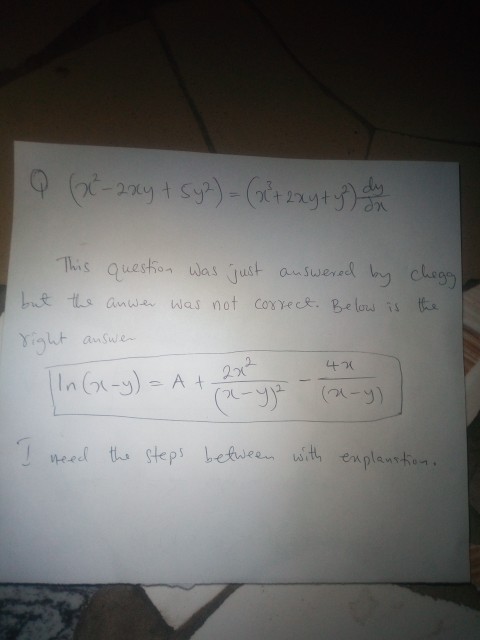 Q (x² - 2xy + 5y²) = (x³ + 2xy + y²) dy/dx
This question was just answered by chegg
but the anwer was not correct. Below is the
right answer
ln(x-y) = A + 2x²/(x-y)² - 4x/(x-y)
I need the steps between with explanation.